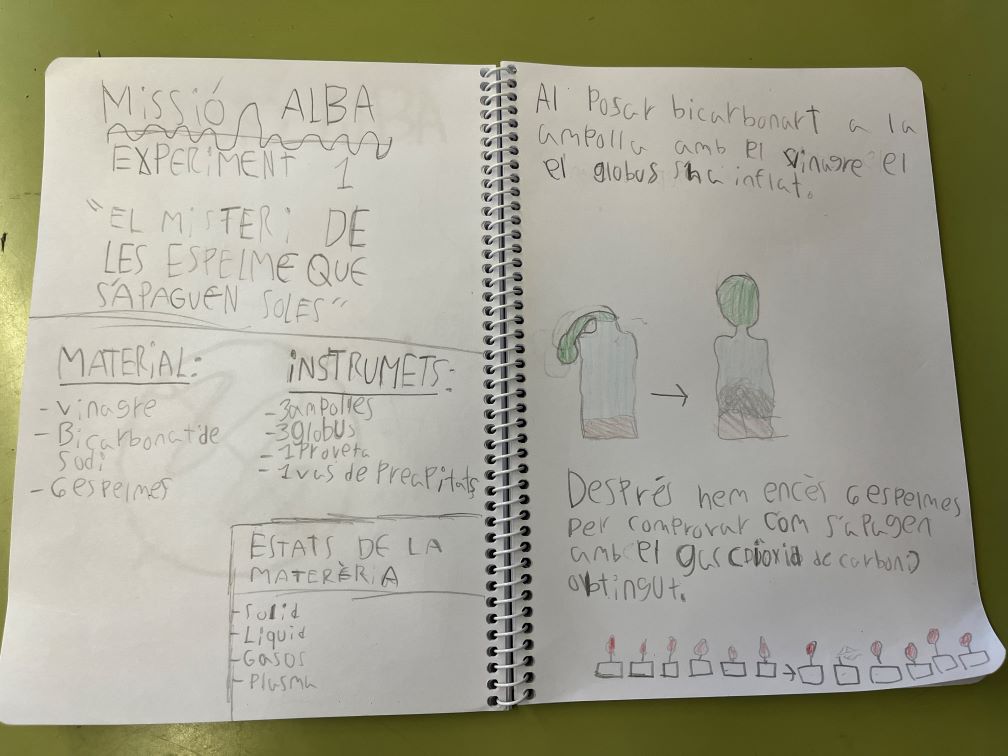 Missión ALBA
EXPERIMENT 1
"EL MISTERI DE
LES ESPELME QUE
S'APAGUEN SOLES"
MATERIAL:
- Vinagre
- Bicarbonat de
Sodi
- 6 espelmes
INSTRUMETS:
- 3 ampolles
- 3 globus
- 1 Proveta
- 1 vas de Preapitats
ESTATS DE LA
MATERÈRIA
- Solid
- Líquid
- Gasos
- Plasma
Al Posar bicarbonart a la
ampolla amb el vinagre el
el globus s'ha inflat.
Després hem encès 6 espelmes
per comprovar com s'apagen
amb el gas (diòxid de carboni)
obtingut.